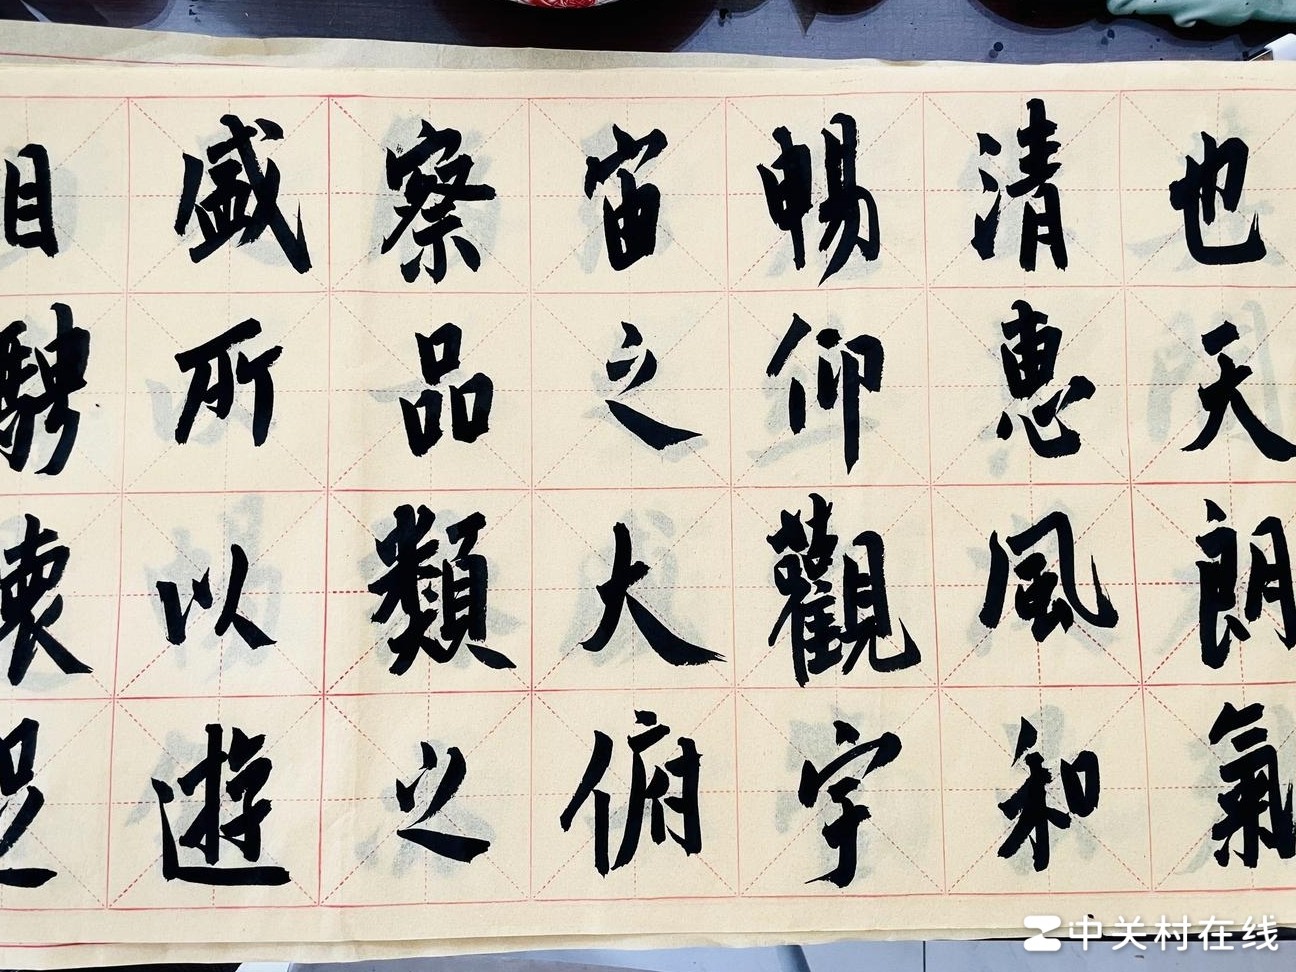 也天朗氣
清惠風和
暢仰觀宇
宙之大俯
察品類之
盛所以遊
目騁懷足
中关村在线